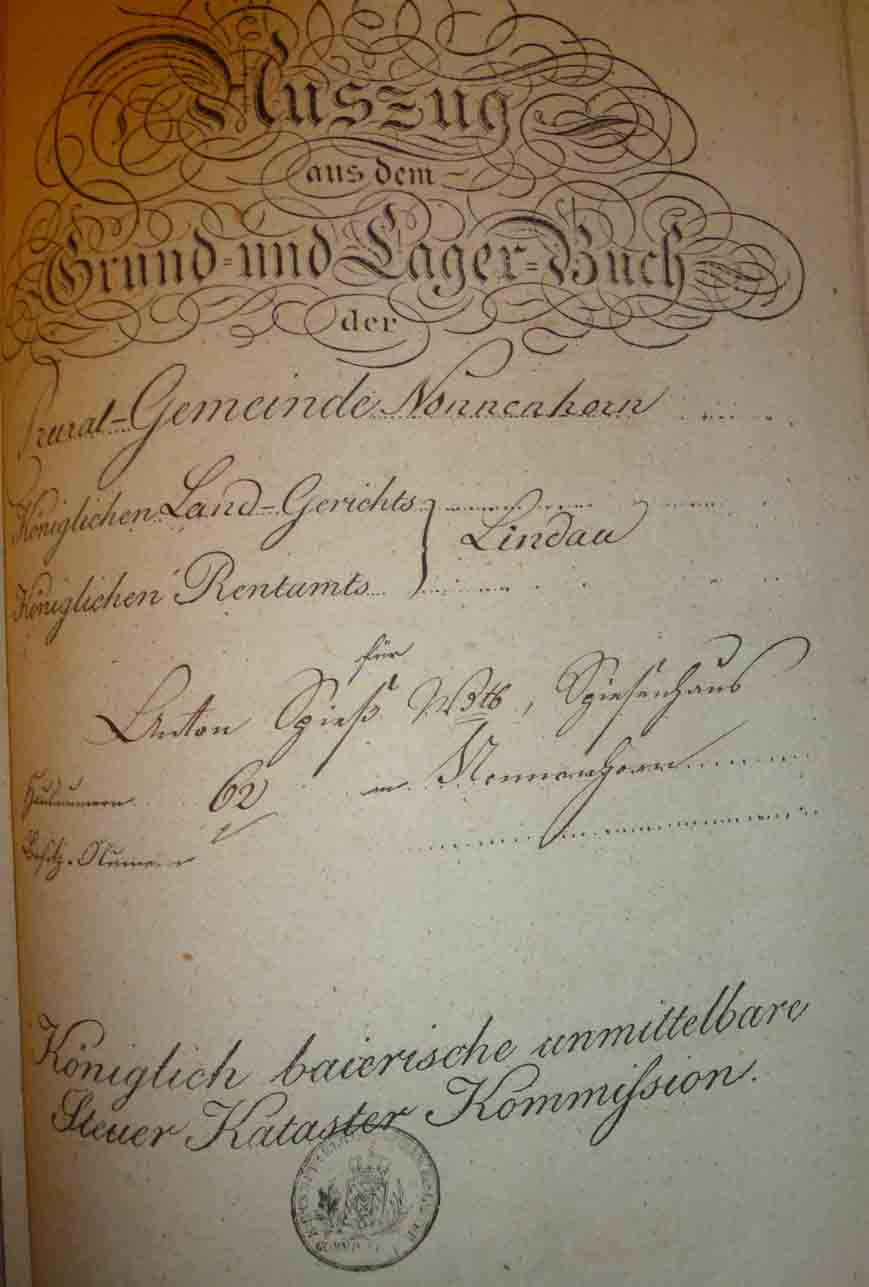 Auszug
aus dem
Grund= und Lager=Buch
der
Rural-Gemeinde Nonnenhorn
Königlichen Land-Gerichts
Lindau
Königlichen Rentamts
für
Anton Spieß Wtb, Spiesenhaus
Hausnummern 62 in Nonnenhorn
Besitz-Nummer
Königlich baierische unmittelbare
Steuer Kataster Kommission.